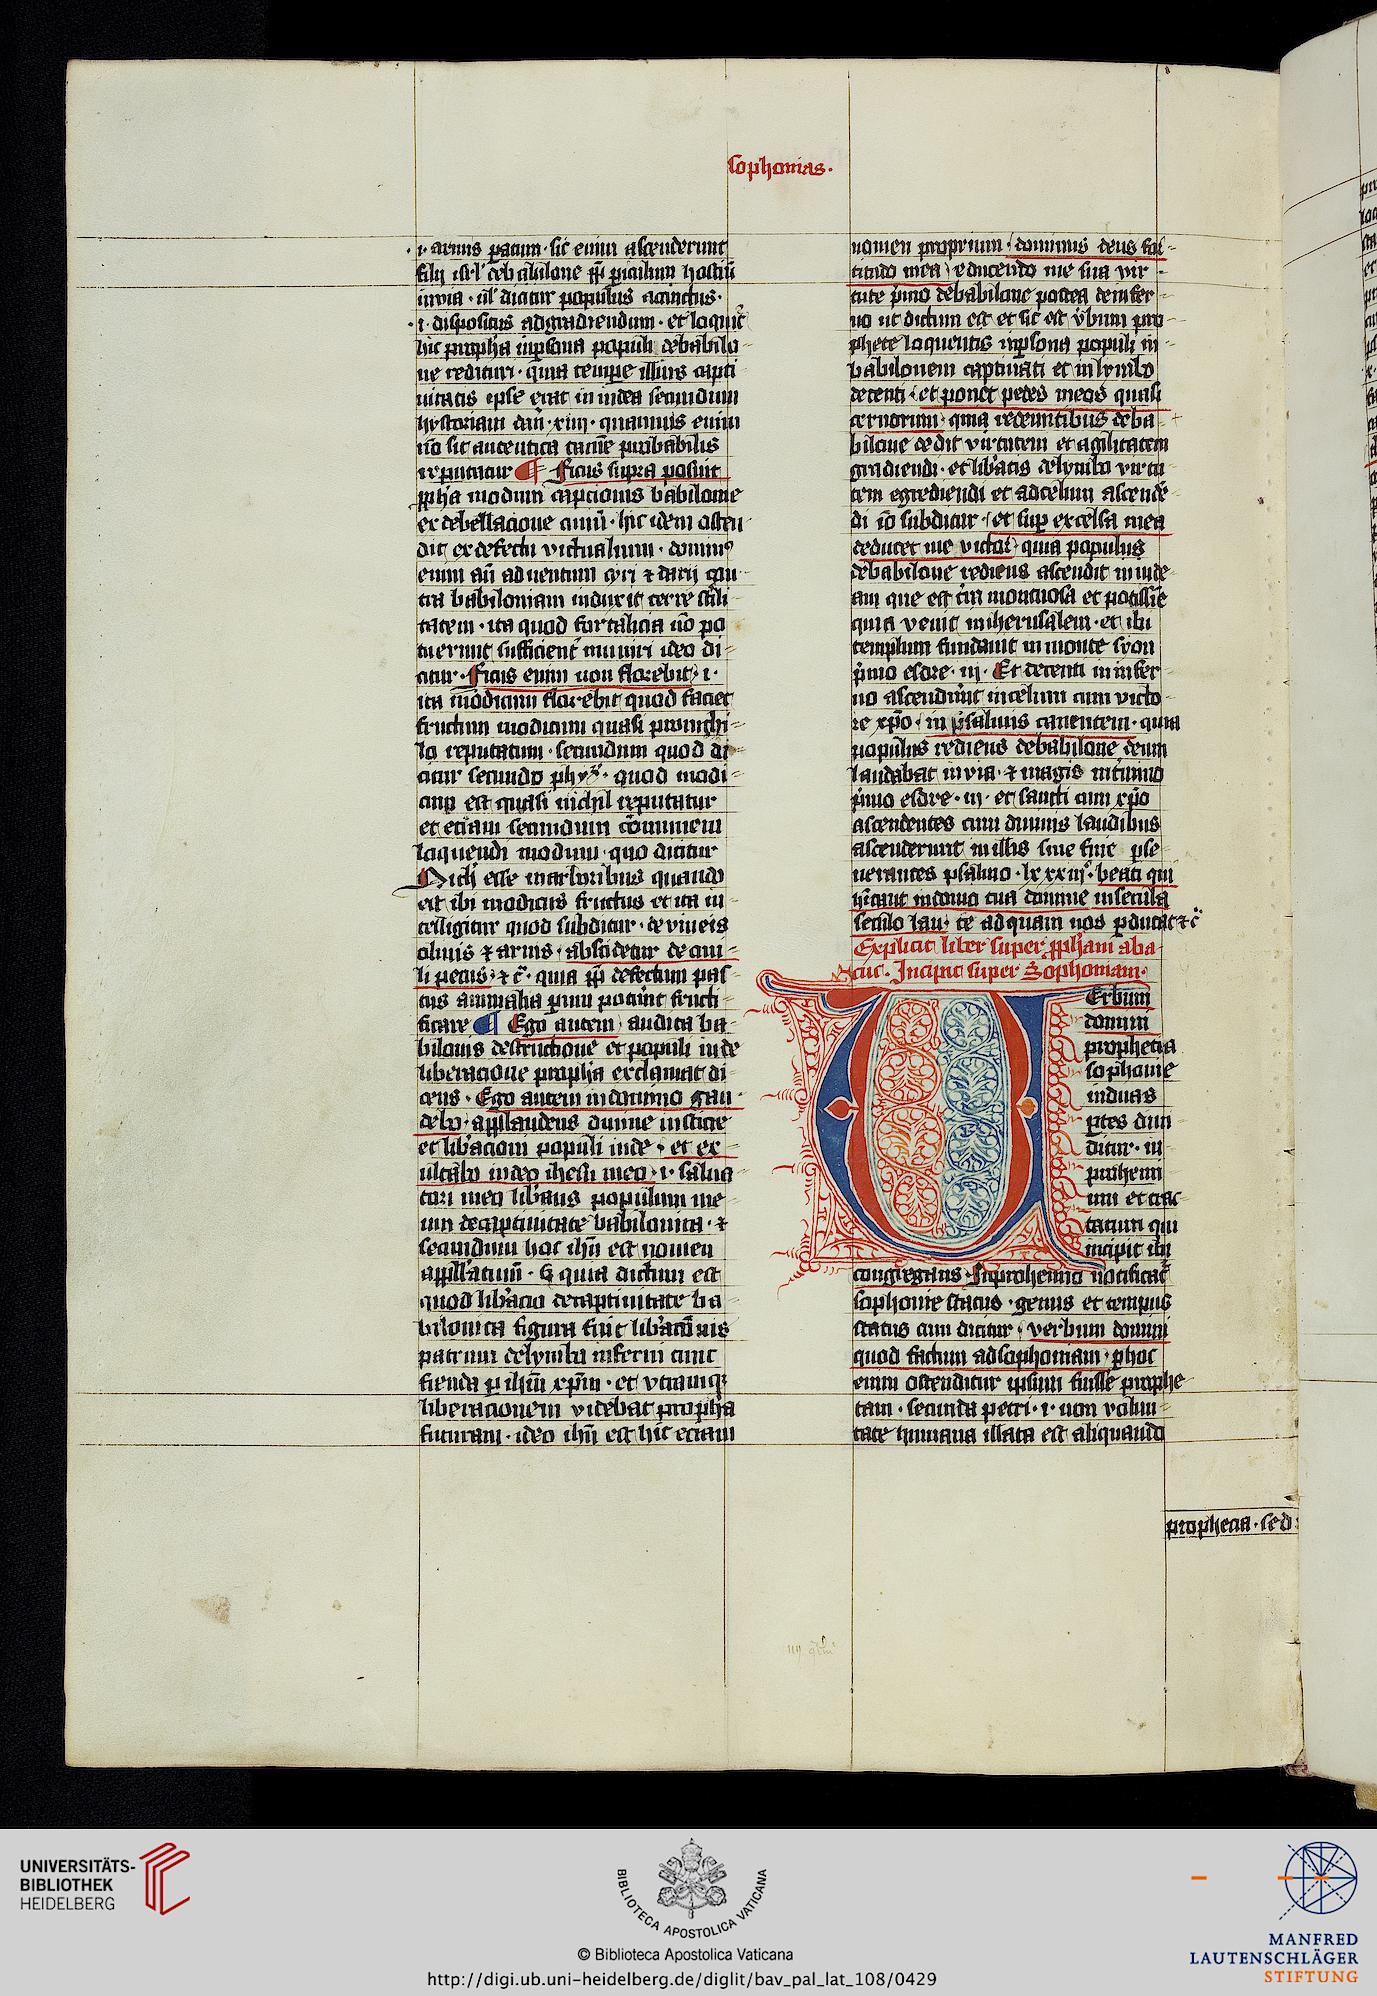 sophonias.
.i. armis paratum. sic enim ascenderunt
filij isrl' de babilone ꝓpter periculum hostiū
in via. ul' dicitur populus accinctus.
.i. dispositus ad gradiendum. et loquit̄
hic propha in persona populi de babilo
ne redituri. quia tempore illius capti
uitatis ipse erat in iudea secundum
hystoriam dan̄. xiiij. quamuis enim
nō sit autentica tamē probabilis
reputatur ¶ Ficus supra posuit
ppha modum capcionis babilonie
ex debellacione ciuiū. hic idem osten
dit ex defectu victualium. dominꝰ
enim añ aduentum cyri ⁊ darij con
tra babiloniam induxit terre steri
tatem. ita quod fortalicia nō po
tuerunt sufficient̄ muniri ideo di
citur. Ficus enim non florebit. i.
ita modicum florebit quod faciet
fructum modicum quasi pro nichi
lo reputatum. secundum quod di
citur secundo phys̄. quod modi
cum est quasi nichil reputatur
et etiam secundum cōmunem
loquendi modum. quo dicitur
Nichil esse in arboribus quando
est ibi modicus fructus et ita in
telligitur quod subditur. de vineis
oliuis ⁊ aruis. abscidetur de oui
li pecus. ⁊ c̄. quia ꝓpter defectum pas
tus animalia parum poterūt fructi
ficare ¶ Ego autem audita ba
bilonis destructione et populi inde
liberacione propha exclamat di
cens. Ego autem in domino gau
debo. applaudens diuine iusticie
et liberacioni populi inde. et ex
ultabo in deo ihesu meo. i. salua
tori meo liberans populum me
um de captiuitate babilonica. ⁊
secundum hoc ihū est nomen
appellatiuū. S quia dictum est
quod liberacio de captiuitate ba
bilonica figura fuit liberacōnis
patrum de lymbo inferni tunc
fienda per ihm̄ xpm̄. et vtramqꝫ
liberacionem videbat propha
futuram. ideo ihū est hic eciam
nomen proprium. dominus deus for
titudo mea) educendo me sua vir
tute primo de babilone postea de infer
no ut dictum est et sic est verbum pro
phete loquentis in persona populi in
babilonem captiuati et in lymbo
detenti. et ponet pedes meos quasi
ceruorum. quia redeuntibus de ba
bilone dedit virtutem et agilitatem
gradiendi. et liberatis de lymbo virtu
tem egrediendi et ad celum ascendē
di iō subditur. et super excelsa mea
deducet me victor) quia populus
de babilone rediens ascendit in iude
am que est terra montuosa et potissīe
quia venit in iherusalem. et ibi
templum fundauit in monte syon
primo esdre. iij. Et detenti in infer
no ascenderunt in celum cum victo
re xpo. in psalmis canentem. quia
populus rediens de babilone deum
laudabat in via. ⁊ magis in termino
primo esdre. iij. et sancti cum xpo
ascendentes cum diuinis laudibus
ascenderunt in illis sine fine perse
uerantes psalmo. lxxxiijº. beati qui
habitant in domo tua domine in secula
seculo lau. te ad quam nos perducat ⁊ c̄
Explicit liber super ppham aba
cuc. Incipit super Sophoniam.
Verbum
domini
prophetia
sophonie
in duas
partes diui
ditur. in
prohemi
um et trac
tatum qui
incipit ibi
congregans. In prohemio notificat̄
sophonie status. genus et tempus
status cum dicitur. verbum domini
quod factum ad sophoniam. per hoc
enim ostenditur ipsum fuisse prophe
tam. secunda petri. i. non volun
tate humana illata est aliquando
prophecia. sed
UNIVERSITÄTS-
BIBLIOTHEK
HEIDELBERG
BIBLIOTECA APOSTOLICA VATICANA
© Biblioteca Apostolica Vaticana
http://digi.ub.uni-heidelberg.de/diglit/bav_pal_lat_108/0429
MANFRED
LAUTENSCHLÄGER
STIFTUNG